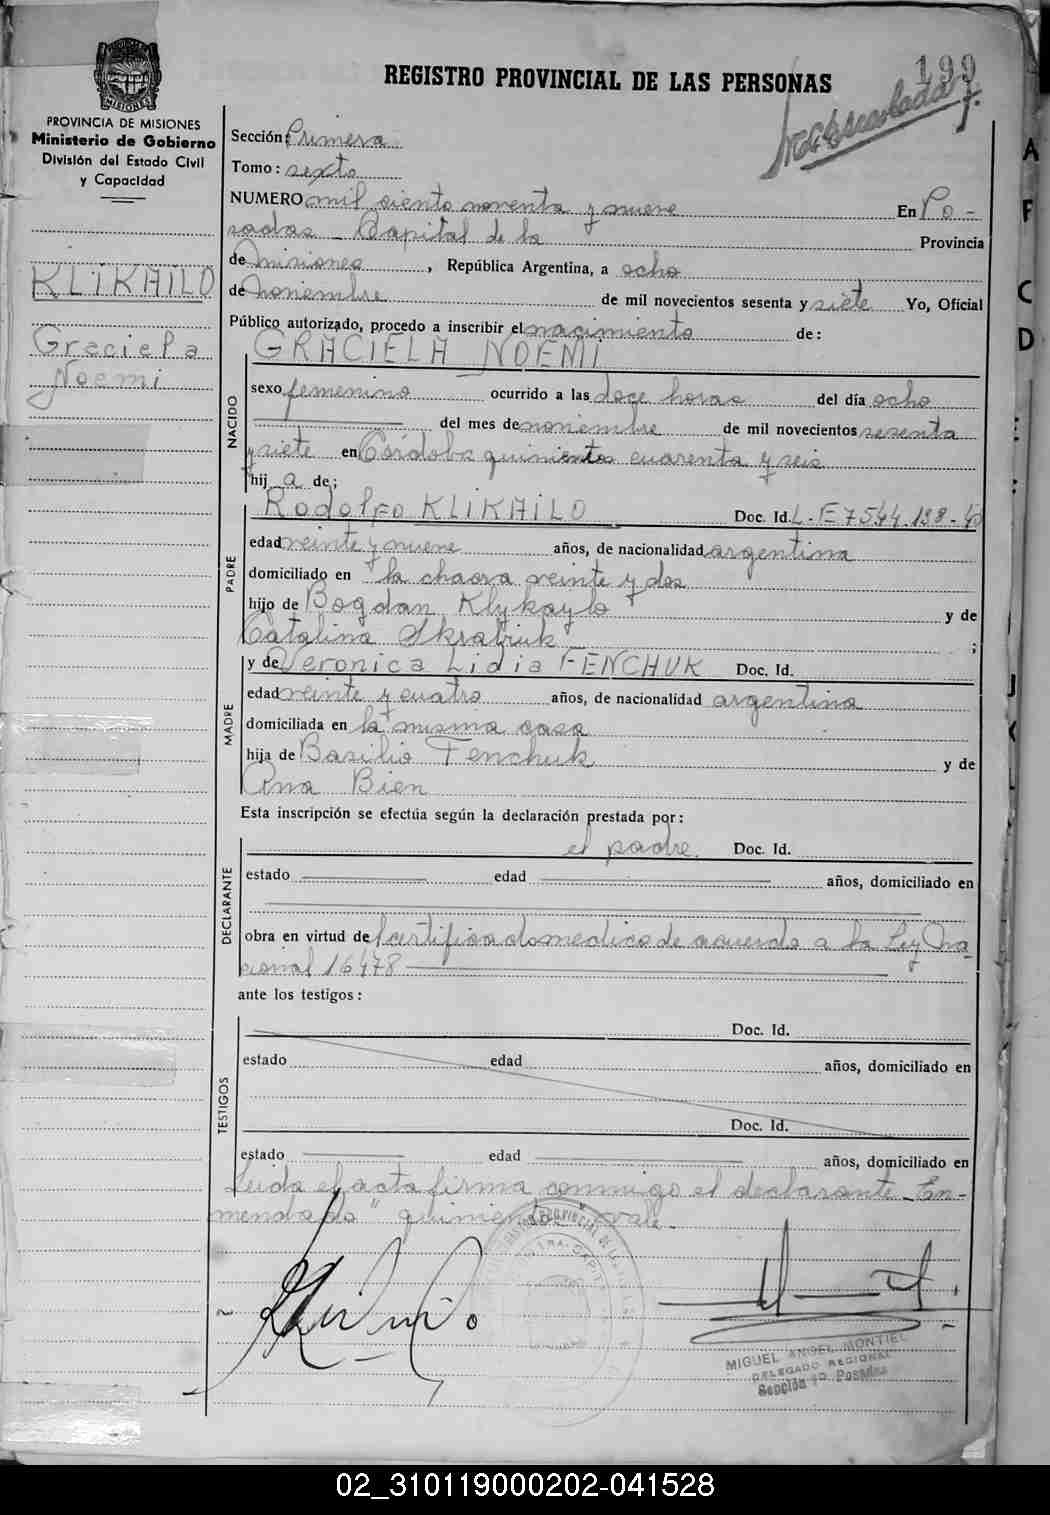 199
REGISTRO PROVINCIAL DE LAS PERSONAS
PROVINCIA DE MISIONES
Ministerio de Gobierno
División del Estado Civil
y Capacidad
KLIKAILO
Graciela
Noemi
Sección: Primera
Tomo: sexto
NUMERO mil ciento noventa y nueve En Po-
sadas - Capital de la Provincia
de Misiones, República Argentina, a ocho
de noviembre de mil novecientos sesenta y siete Yo, Oficial
Público autorizado, procedo a inscribir el nacimiento de:
GRACIELA NOEMI
NACIDO
sexo femenino ocurrido a las doce horas del día ocho
del mes de noviembre de mil novecientos sesenta
y siete en Córdoba quinientos cuarenta y seis
hija de;
PADRE
Rodolfo KLIKAILO Doc. Id. L-E 7544.138-
edad veinte y nueve años, de nacionalidad argentina
domiciliado en la chacra veinte y dos
hijo de Bogdan Klykaylo y de
Catalina Skrabiuk ;
MADRE
y de Veronica Lidia FENCHUK Doc. Id.
edad veinte y cuatro años, de nacionalidad argentina
domiciliada en la misma casa
hija de Basilio Fenchuk y de
Ana Bien
Esta inscripción se efectúa según la declaración prestada por:
DECLARANTE
el padre. Doc. Id.
estado edad años, domiciliado en
obra en virtud de certificado medico de acuerdo a la Ley Na-
cional 16478
ante los testigos:
TESTIGOS
Doc. Id.
estado edad años, domiciliado en
Doc. Id.
estado edad años, domiciliado en
Leida el acta firma conmigo el declarante - En-
mendado "quinientos" vale.
MIGUEL ANGEL MONTIEL
DELEGADO REGIONAL
Sección 1a Posadas
02_310119000202-041528